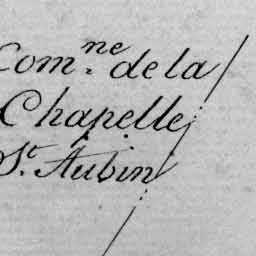 Com.ne de la
Chapelle
St. Aubin